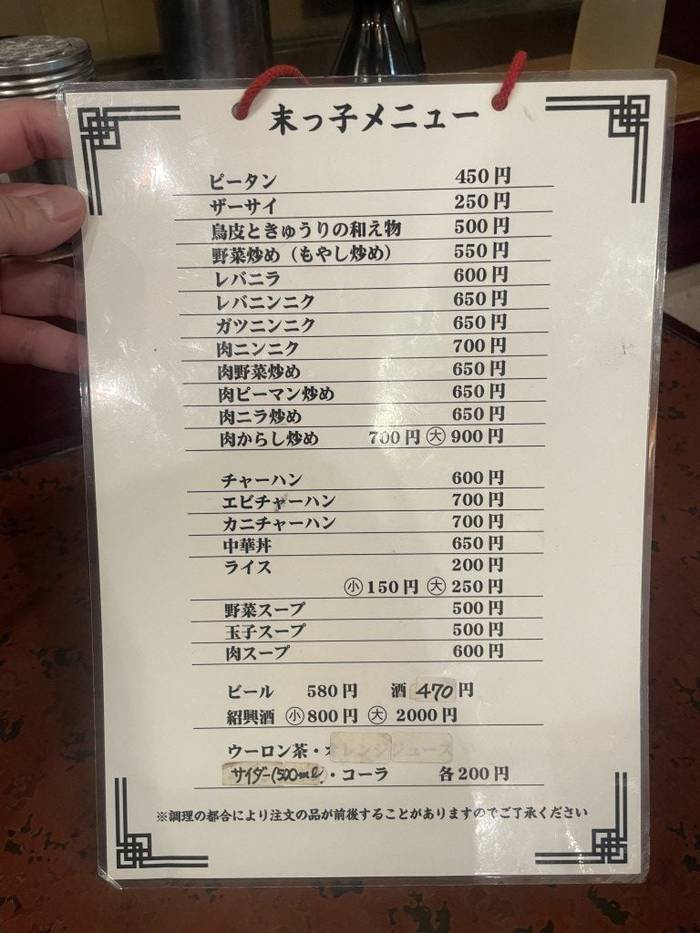 末っ子メニュー
ピータン 450円
ザーサイ 250円
鳥皮ときゅうりの和え物 500円
野菜炒め（もやし炒め） 550円
レバニラ 600円
レバニンニク 650円
ガツニンニク 650円
肉ニンニク 700円
肉野菜炒め 650円
肉ピーマン炒め 650円
肉ニラ炒め 650円
肉からし炒め 700円 ㊅900円
チャーハン 600円
エビチャーハン 700円
カニチャーハン 700円
中華丼 650円
ライス 200円
小150円 大250円
野菜スープ 500円
玉子スープ 500円
肉スープ 600円
ビール 580円 酒 470円
紹興酒 小800円 大 2000円
ウーロン茶・オレンジジュース
サイダー(500ml)・コーラ 各200円
※調理の都合により注文の品が前後することがありますのでご了承ください